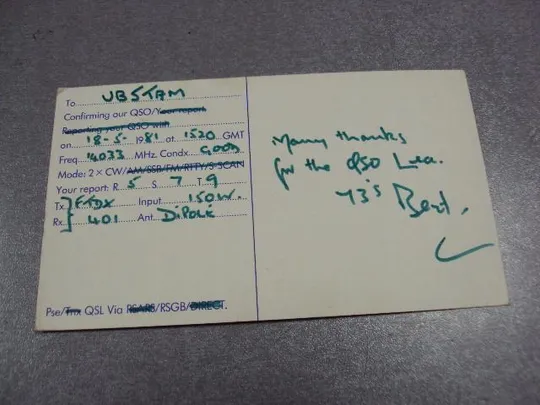 To UB5TAM
Confirming our QSO/Your report
Reporting your QSO with
on 18-5-1981 at 1520 GMT
Freq. 14033 MHz. Condx. GOOD
Mode: 2 × CW/AM/SSB/FM/RTTY/S-SCAN
Your report: R 5 S 7 T 9
Tx FTDX Input 150W.
Rx 401 Ant. DIPOLE
Pse/Tnx QSL Via RSARS/RSGB/DIRECT.
Many thanks
for the QSO Lea.
73's Bert.